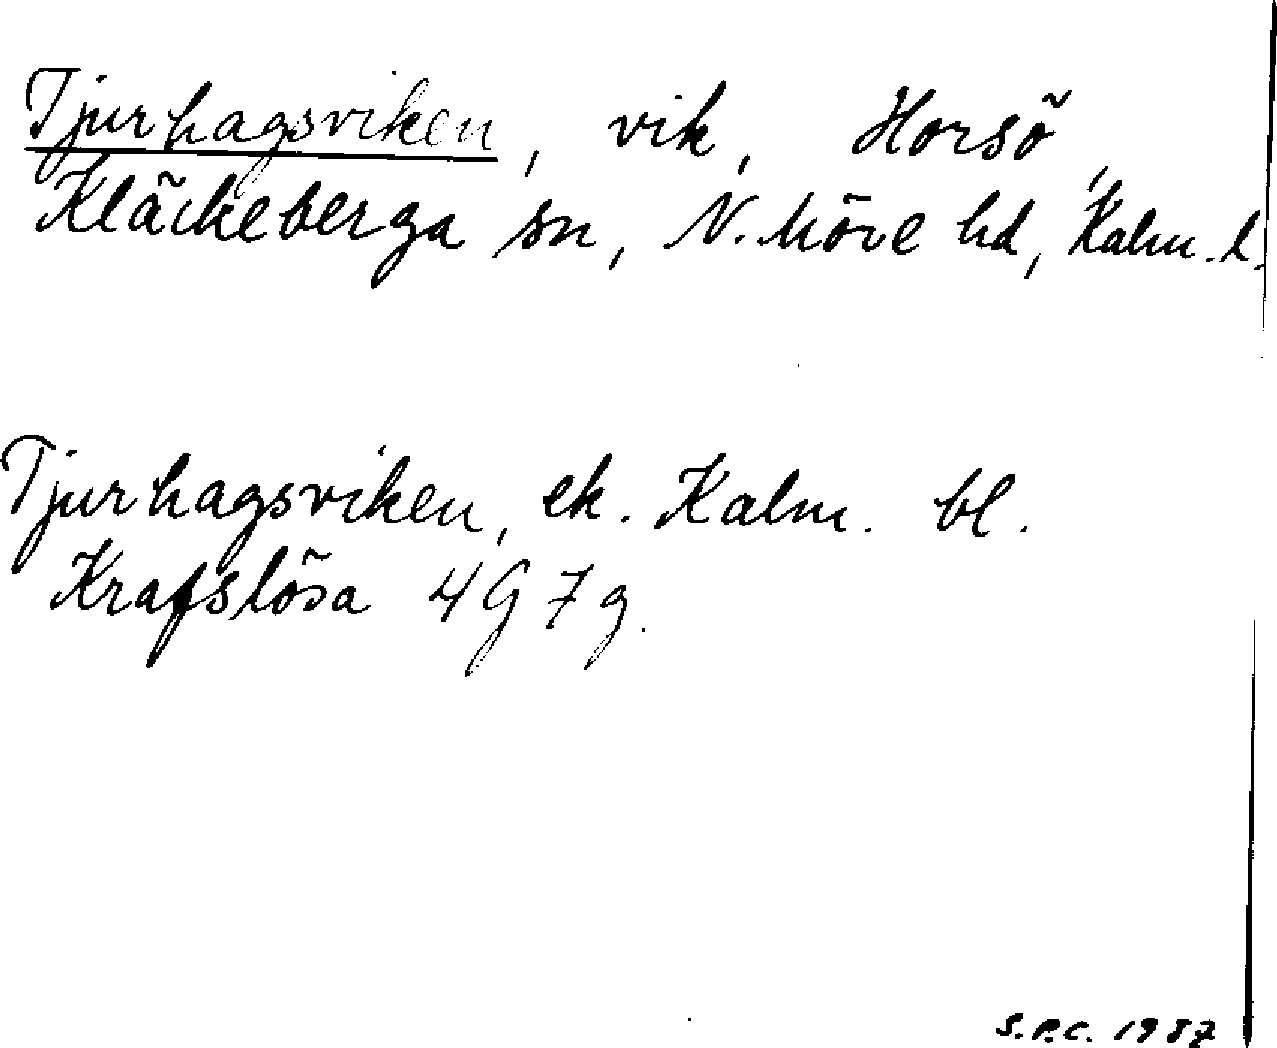 Tjurhagsviken, vik, Horsö,
Kläckeberga sn, N. Möre hd, Kalm. l.
Tjurhagsviken, ek. Kalm. bl.
Krafslösa 4G7g.
S.P.C. 1937